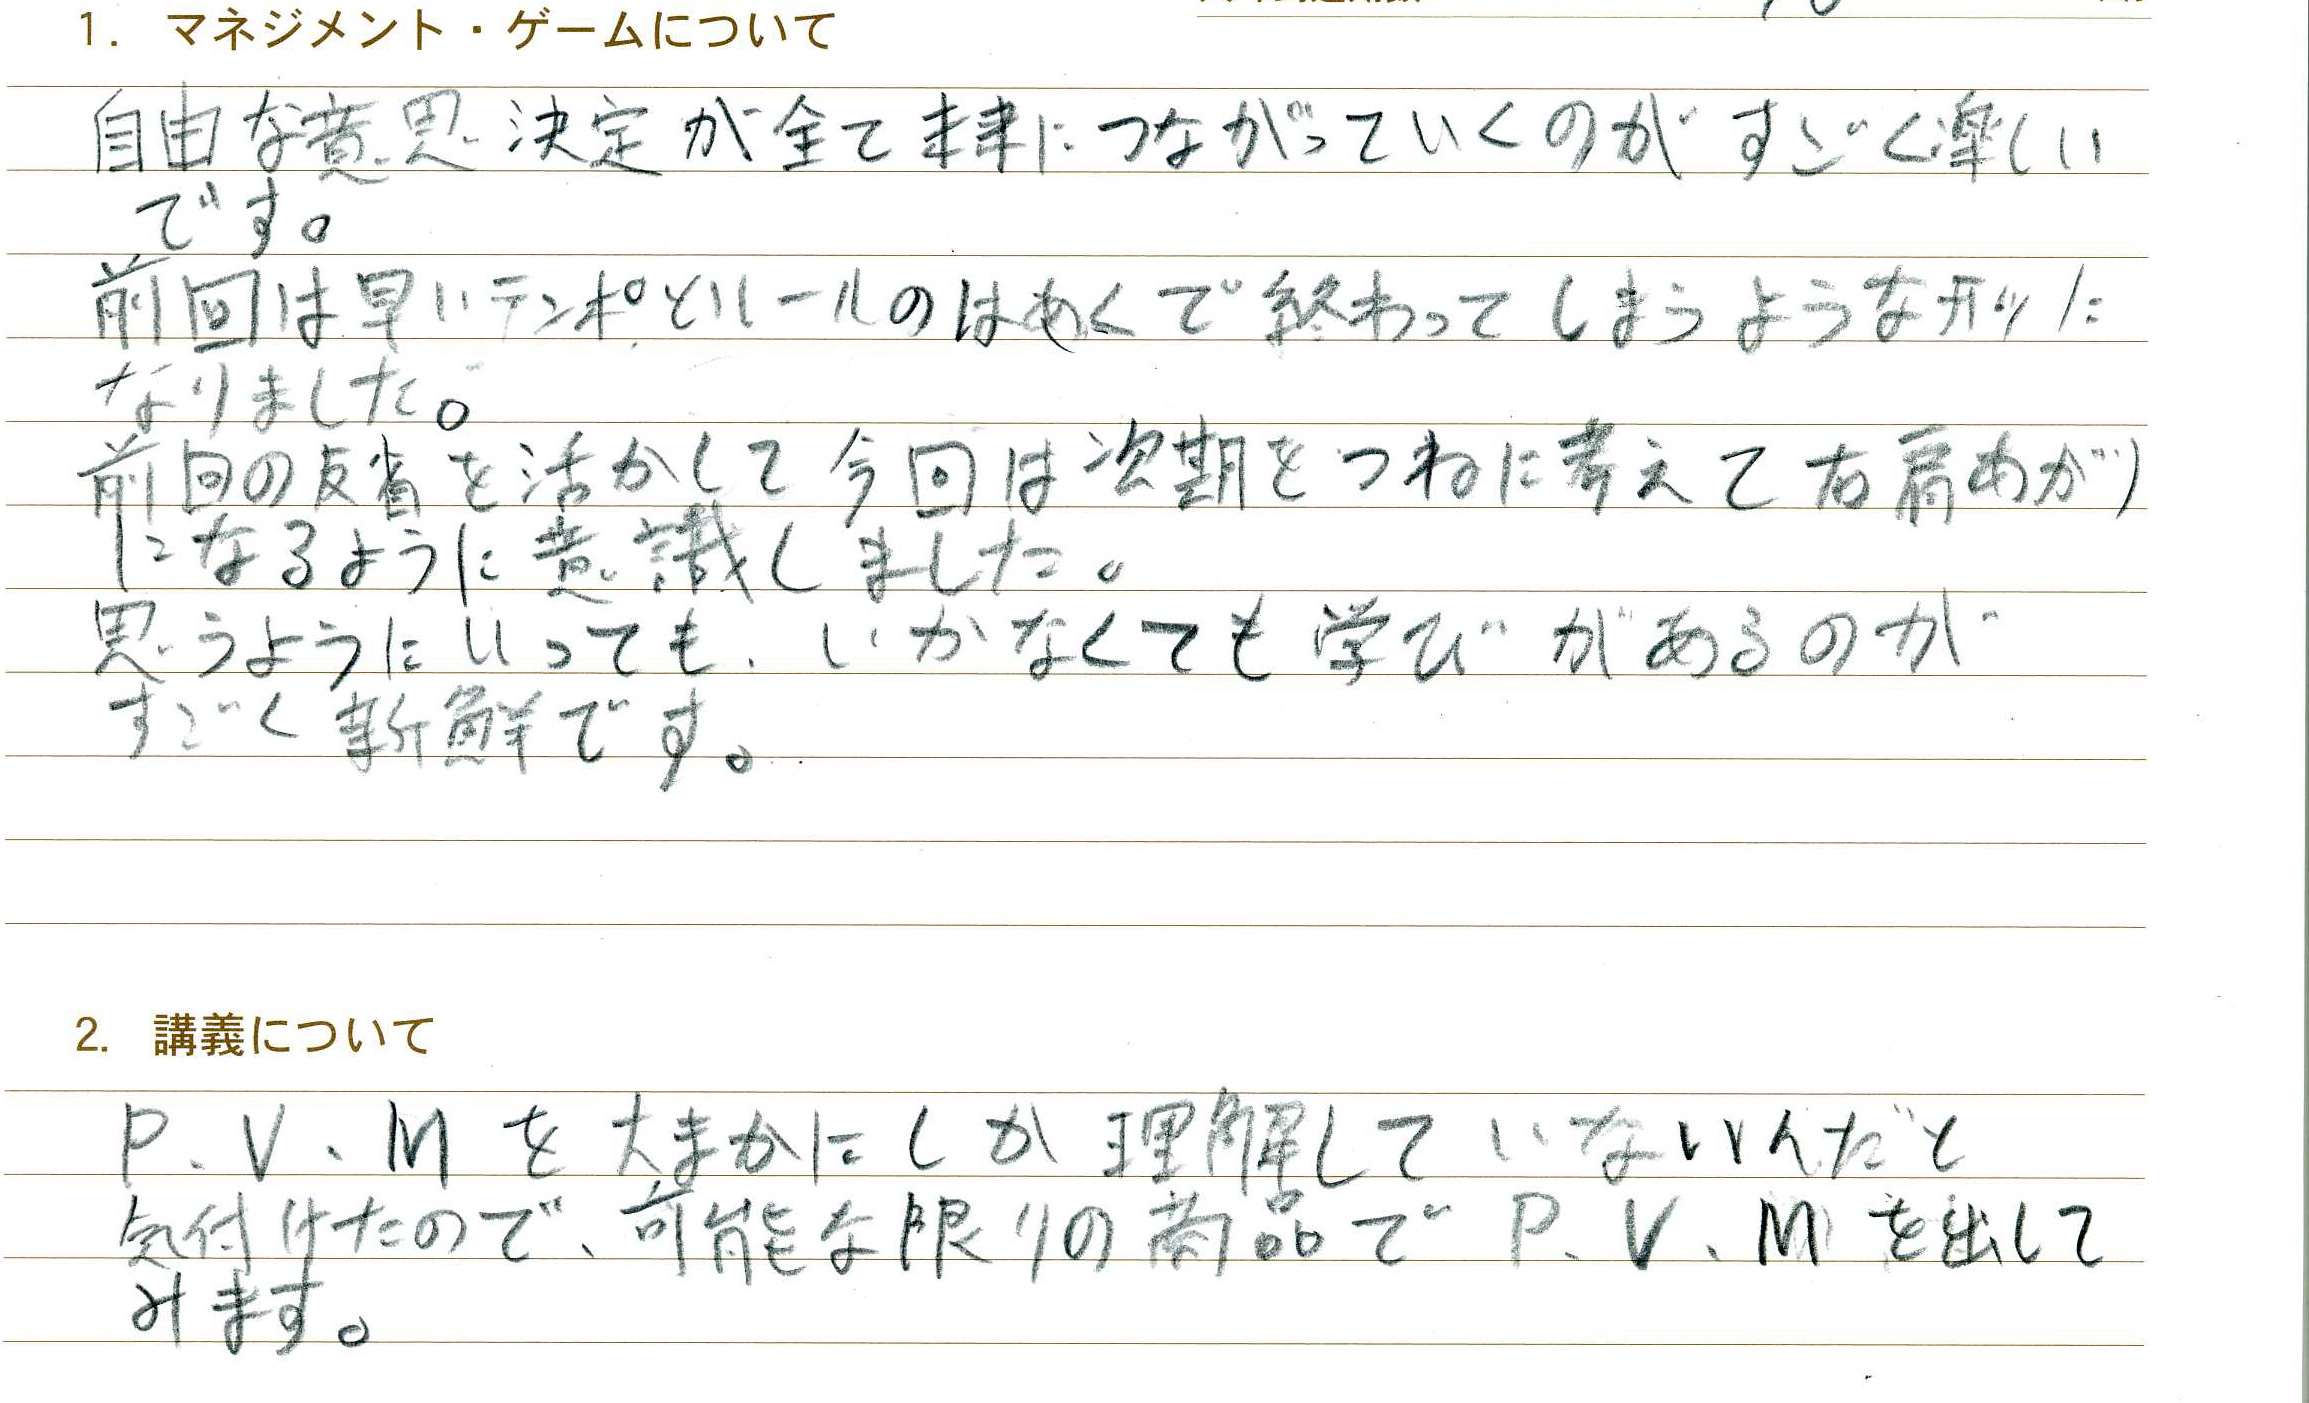 1. マネジメント・ゲームについて
自由な意思決定が全てにつながっていくのがすごく楽しい
です。
前回は早いテンポとルールのはあくで終わってしまうような形に
なりました。
前回の反省を活かして今回は次期をつねに考えて右肩あがり
になるように意識しました。
思うようにいっても、いかなくても学びがあるのが
すごく新鮮です。
2. 講義について
P、V、Mを大まかにしか理解していないんだと
気付けたので、可能な限りの商品でP、V、Mを出して
みます。